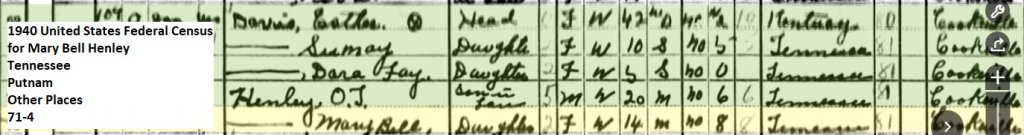 1940 United States Federal Census
for Mary Bell Henley
Tennessee
Putnam
Other Places
71-4
Davis, Esther Head F W 42 Kentucky Cookeville
Daughter F W 10 S no 5 Tennessee 81 Cookeville
—, Dora Fay Daughter F W 5 S no 0 Tennessee 81 Cookeville
Henley, O.T. Son-in Law M W 20 M no 6 6 Tennessee 81 Cookeville
— Mary Bell, Daughter 2 F W 14 M no 8 8 Tennessee 81 Cookeville